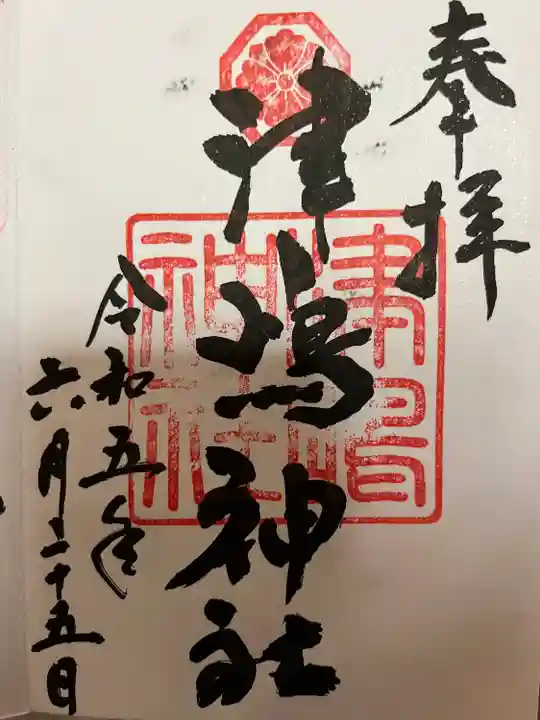 奉拝
津嶋神社
津嶋神社
令和五年
六月二十五日